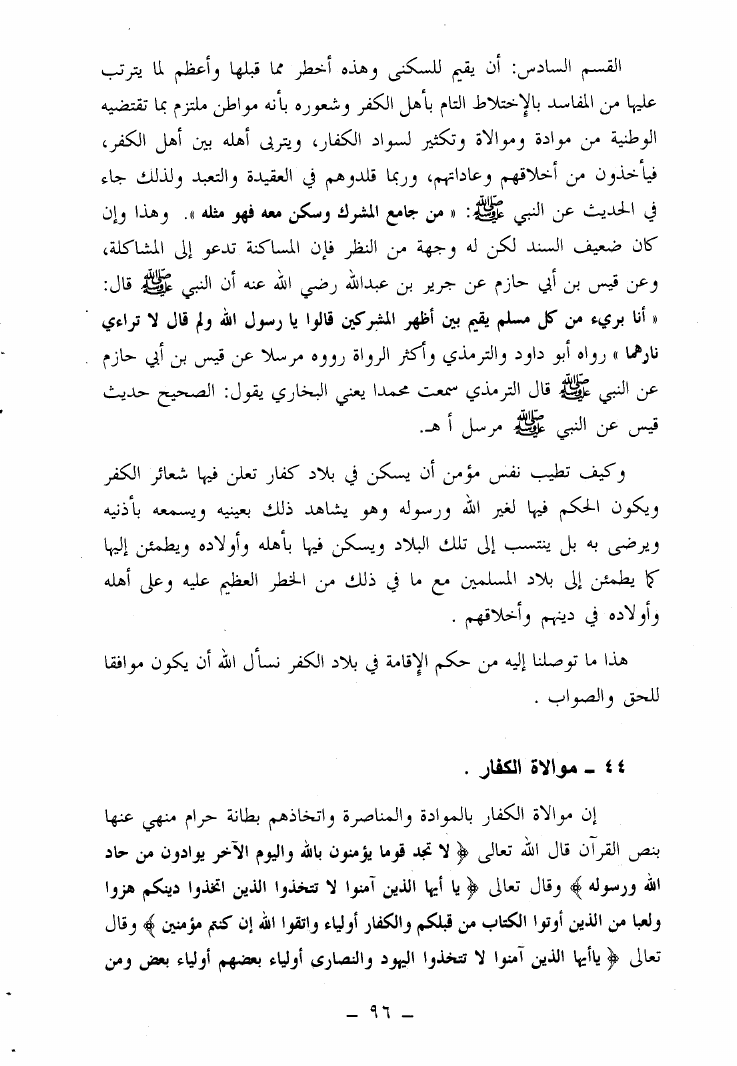 القسم السادس: أن يقيم للسكنى وهذه أخطر مما قبلها وأعظم لما يترتب
عليها من المفاسد بالإختلاط التام بأهل الكفر وشعوره بأنه مواطن ملتزم بما تقتضيه
الوطنية من موادة وموالاة وتكثير لسواد الكفار، ويتربى أهله بين أهل الكفر،
فيأخذون من أخلاقهم وعاداتهم، وربما قلدوهم في العقيدة والتعبد ولذلك جاء
في الحديث عن النبي ﷺ: « من جامع المشرك وسكن معه فهو مثله ». وهذا وإن
كان ضعيف السند لكن له وجهة من النظر فإن المساكنة تدعو إلى المشاكلة،
وعن قيس بن أبي حازم عن جرير بن عبدالله رضي الله عنه أن النبي ﷺ قال:
« أنا بريء من كل مسلم يقيم بين أظهر المشركين قالوا يا رسول الله ولم قال لا تراءي
نارهما » رواه أبو داود والترمذي وأكثر الرواة رووه مرسلا عن قيس بن أبي حازم
عن النبي ﷺ قال الترمذي سمعت محمدا يعني البخاري يقول: الصحيح حديث
قيس عن النبي ﷺ مرسل أ هـ.
وكيف تطيب نفس مؤمن أن يسكن في بلاد كفار تعلن فيها شعائر الكفر
ويكون الحكم فيها لغير الله ورسوله وهو يشاهد ذلك بعينيه ويسمعه بأذنيه
ويرضى به بل ينتسب إلى تلك البلاد ويسكن فيها بأهله وأولاده ويطمئن إليها
كما يطمئن إلى بلاد المسلمين مع ما في ذلك من الخطر العظيم عليه وعلى أهله
وأولاده في دينهم وأخلاقهم .
هذا ما توصلنا إليه من حكم الإقامة في بلاد الكفر نسأل الله أن يكون موافقا
للحق والصواب .
٤٤ ـ موالاة الكفار .
إن موالاة الكفار بالموادة والمناصرة واتخاذهم بطانة حرام منهي عنها
بنص القرآن قال الله تعالى ﴿ لا تجد قوما يؤمنون بالله واليوم الآخر يوادون من حاد
الله ورسوله ﴾ وقال تعالى ﴿ يا أيها الذين آمنوا لا تتخذوا الذين اتخذوا دينكم هزوا
ولعبا من الذين أوتوا الكتاب من قبلكم والكفار أولياء واتقوا الله إن كنتم مؤمنين ﴾ وقال
تعالى ﴿ ياأيها الذين آمنوا لا تتخذوا اليهود والنصارى أولياء بعضهم أولياء بعض ومن
ـ ٩٦ ـ